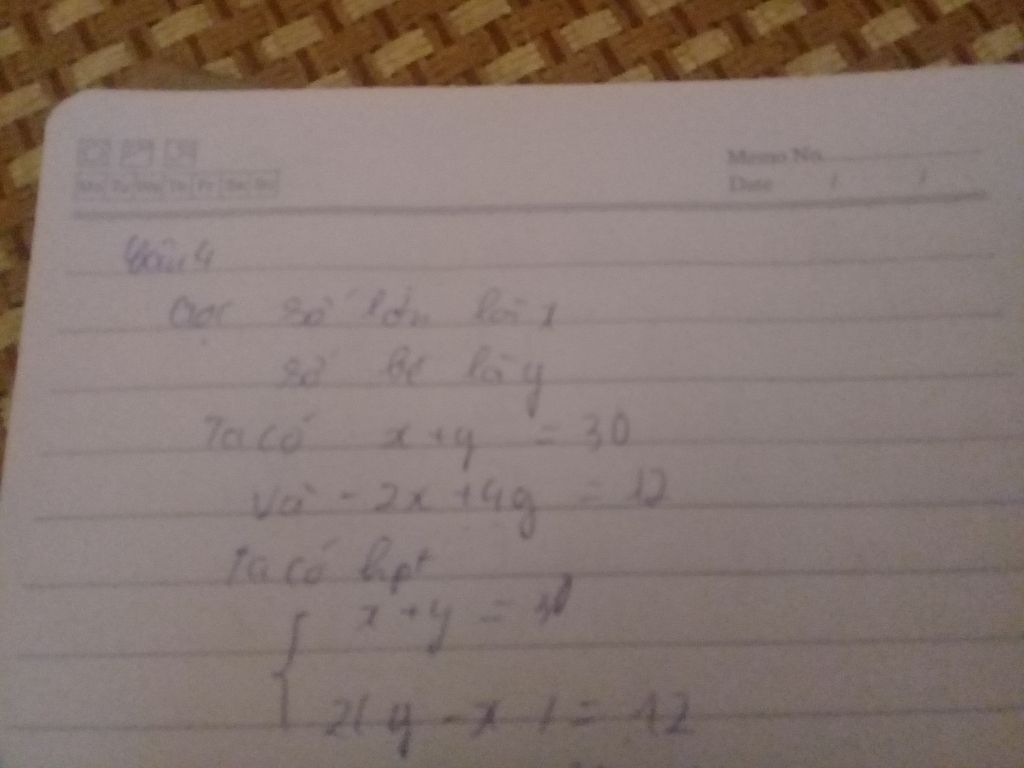 Memo No.
Mo Tu We Th Fr Sa Su
Date / /
Câu 4
Gọi số lớn là x
số bé là y
Ta có x + y = 30
và - 2x + 4y = 12
Ta có hpt
x + y = 30
2(y - x) = 12